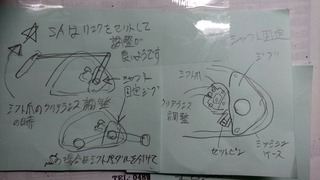 SAはリンクをセットして
調整が
良いようです
シャフト
固定ジグ
シフト爪のクリアランス調整
の時
この場合はシフトペダルを付けて
シャフト固定
ジグ
シフト爪
クリアランス
調整
セットピン
ミッション
ケース
TEL 048